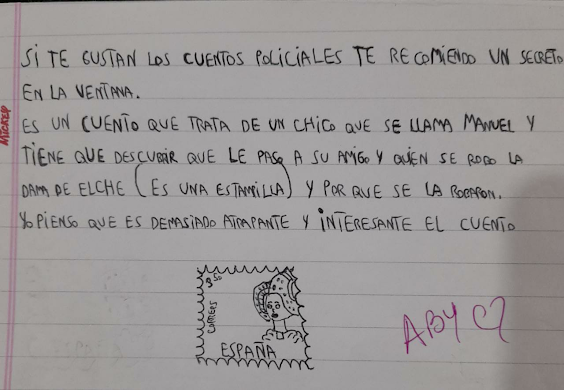 SI TE GUSTAN LOS CUENTOS POLICIALES TE RECOMIENDO UN SECRETO
EN LA VENTANA.
ES UN CUENTO QUE TRATA DE UN CHICO QUE SE LLAMA MANUEL Y
TIENE QUE DESCUBRIR QUE LE PASO A SU AMIGO Y QUIEN SE ROBO LA
DAMA DE ELCHE (ES UNA ESTAMILLA) Y POR QUE SE LA ROBARON.
YO PIENSO QUE ES DEMASIADO ATRAPANTE Y INTERESANTE EL CUENTO
CORREOS
ESPAÑA